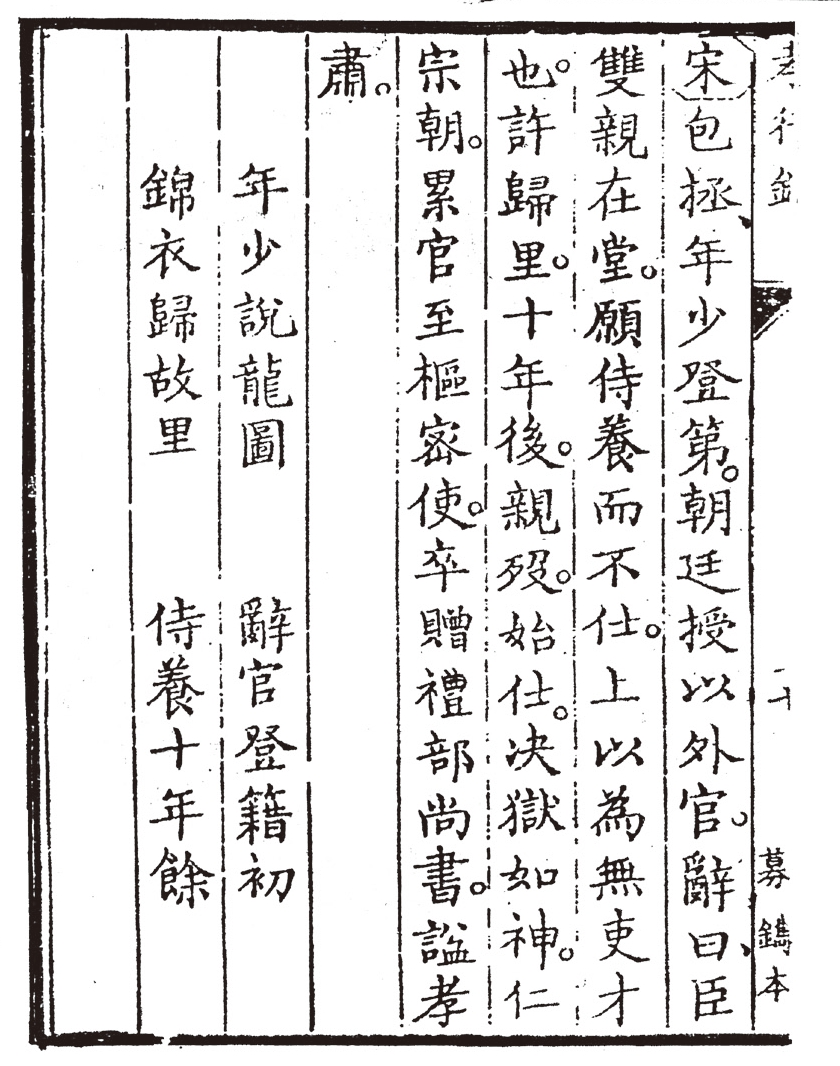 宋包拯、年少登第。朝廷授以外官。辭曰、臣
雙親在堂。願侍養而不仕。上以為無吏才
也。許歸里。十年後。親歿。始仕。決獄如神。仁
宗朝。累官至樞密使。卒贈禮部尚書。諡孝
肅。
年少說龍圖　辭官登籍初
錦衣歸故里　侍養十年餘
募鐫本